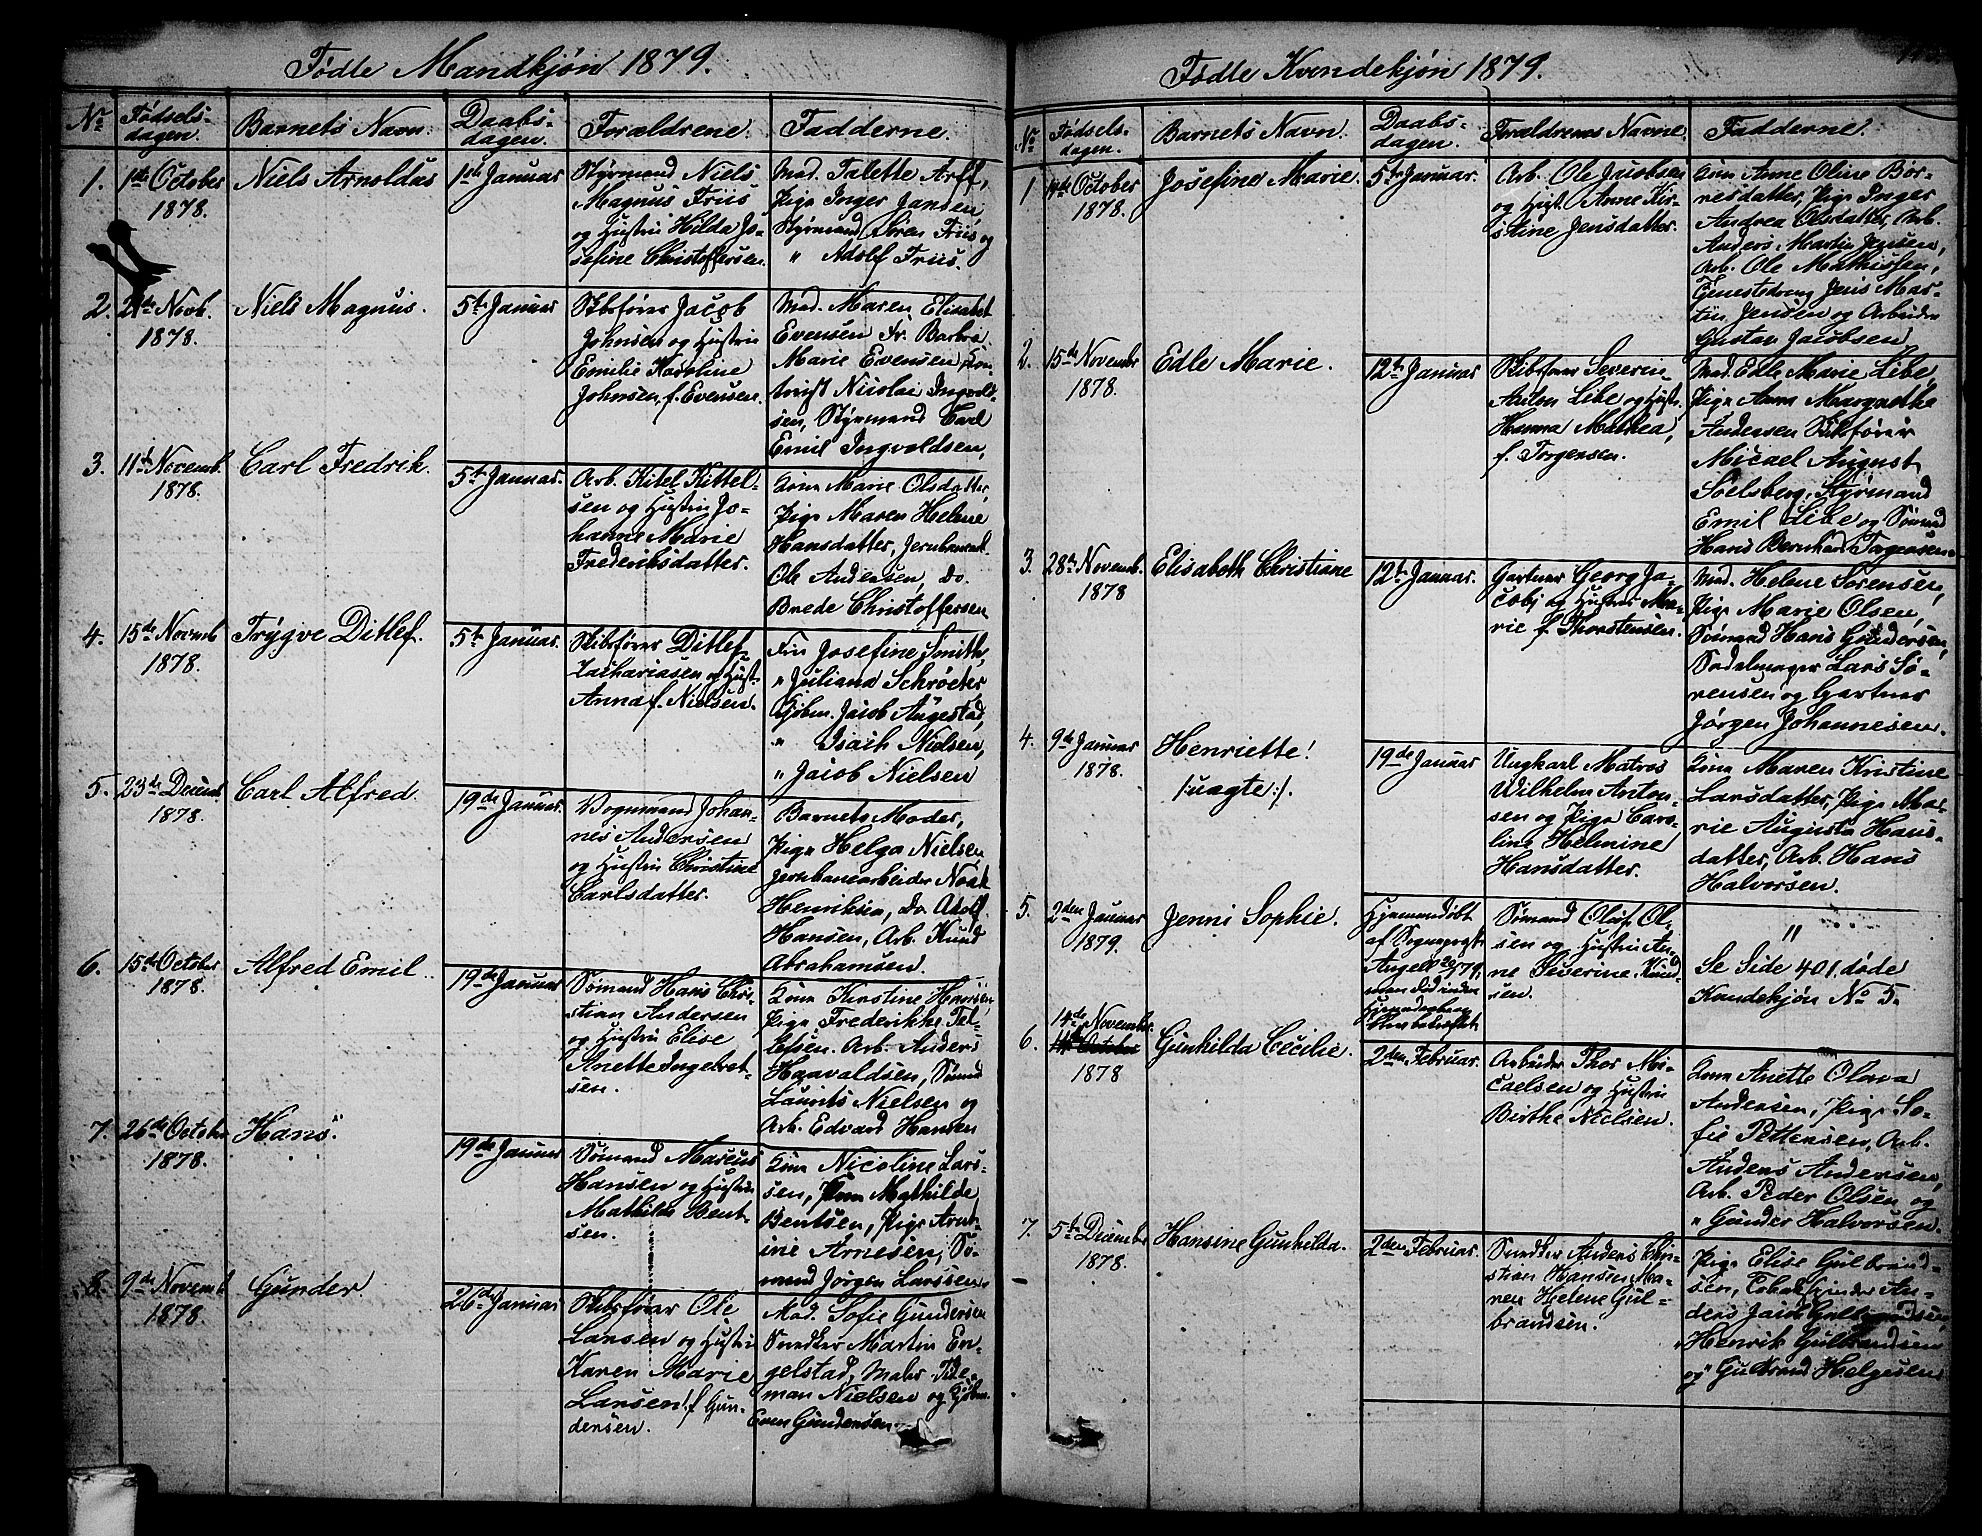 Fødte Mandkjøn 1879.
No
Fødsels-
dagen.
Barnets Navn.
Daabs-
dagen.
Forældrene.
Fadderne.
1.
1ste October
1878.
Niels Arnoldus
1ste Januar
Styrmand Niels
Magnus Friis
og Hustru Hilda Jo-
sefine Christoffersen.
Mad. Talette Arff,
Pige Inger Jansen,
Styrmand Søren Friis og
" Adolf Friis.
2.
Novb.
1878.
Niels Magnus.
5te Januar
Skibsfører Jacob
Johnsen og Hustru
Emilie Karoline
Johnsen, f. Evensen.
Mad. Maren Elisabet
Evensen Fr. Barbra
Marie Evensen, Kon-
torist Nicolai Ingvold-
sen, Styrmand Carl
Emil Ingvoldsen,
3.
11te Novemb.
1878.
Carl Fredrik.
5te Januar.
Arb. Kitel Kittel-
sen og Hustru Jo-
hanne Marie
Frederiksdatter.
Kone Marie Olsdatter,
Pige Maren Helene
Hansdatter, Jernbanearb.
Ole Andersen, do.
Brede Christoffersen
4.
15de Novemb
1878.
Trygve Ditlef.
5te Januar.
Skibsfører Ditlef
Zachariasen og Hust-
Anna f. Nielsen.
Fru Josefine Smith,
" Juliana Schrøeter
Kjøbm. Jacob Aagestad,
" Isach Nielsen,
" Jacob Nielsen
5.
23de Decemb.
1878.
Carl Alfred.
19de Januar.
Vognmand Johan-
nes Andersen
og Hustru Christine
Carlsdatter.
Barnets Moder,
Pige Helga Nielsen
Jernbanearbeider Noak
Henriksen, do. Adolf
Hansen, Arb. Knud
Abrahamsen.
6.
15de October
1878.
Alfred Emil.
19de Januar
Sømand Hans Chri-
stian Andersen
og Hustru Elise
Anette Ingebret-
sen.
Kone Kirstine Hansen
Pige Frederikke Tel-
lefsen. Arb. Anders
Haavaldsen, Sømd
Laurits Nielsen og
Arb. Edvard Hansen
7.
26de October
1878.
Hans.
19de Januar
Sømand Marcus
Hansen og Hustru
Mathilde Bent-
sen.
Kone Nicoline Lars-
sen, Kone Mathilde
Bentsen, Pige Arnt-
ine Arnesen, Sø-
mand Jørgen Larssen.
8.
9de Novemb
1878.
Gunder
26de Januar
Skibsfører Ole
Larsen og Hustru
Karen Marie
Larsen f. Gun-
dersen.
Mad. Sofie Gundersen
Snedker Martin En-
gelstad, Maler Tide-
man Nielsen og Kjøbm.
Even Gundersen.
Fødte Kvindekjøn 1879.
No
Fødsels-
dagen.
Barnets Navn.
Daabs-
dagen.
Forældrenes Navne.
Fadderne.
1
14de October
1878.
Josefine Marie.
5te Januar.
Arb. Ole Jacobsen
og Hust. Anne Kir-
stine Jensdatter.
Kone Anne Oline Bør-
resdatter, Pige Inger
Andrea Olsdatter, Arb.
Anders Martin Jensen,
Arb. Ole Mathissen,
Tjenestedreng Jens Mar-
tin Jensen og Arbeider
Gustav Jacobsen
2.
15de Novembr
1878.
Edle Marie.
12te Januar
Skibsfører Severin
Anton Libe, og Hustr.
Hanna Mathea,
f. Torgersen.
Mad. Edle Marie Libe,
Pige Anna Margrethe
Andersen Skibsfører
Micael August
Soelsberg, Styrmand
Emil Libe og Sømand
Hans Bernhard Torgersen
3.
28de Novemb.
1878
Elisabeth Christiane
12te Januar.
Gartner Georg Ja-
cobj og Hustru Ma-
rie f. Thorstensen.
Mad. Helene Sørensen,
Pige Marie Olsen,
Sømand Hans Gundersen,
Sadelmager Lars Sø-
rensen og Gartner
Jørgen Johannesen.
4.
9de Januar
1878.
Henriette!
/:uægte:/.
19de Januar
Ungkarl Matros
Wilhelm Anton-
sen og Pige Caro-
line Helmine
Hansdatter.
Kone Maren Kristine
Larsdatter, Pige Ma-
rie Augusta Hans-
datter, Arb. Hans
Halvorsen.
5.
2den Januar
1879.
Jenni Sophie.
Hjemmedøbt
af Sognepræst
Angell 20/1 79,
men død inden
Hjemmedaaben
blev bekræftet
Sømand Oluf Ol-
sen og Hustru An-
ne Severine Knud-
sen.
"
Se Side 401 døde
Kvindekjøn No 5.
6.
14de November
October
1878
Gunhilda Cecilie.
2den Februar.
Arbeider Thor Mi-
caelsen og Hustru
Birthe Nielsen.
Kone Anette Olava
Andersen, Pige So-
fie Pettersen, Arb.
Anders Andersen,
Arb. Peder Olsen og
" Gunder Halvorsen.
7.
5te Decembr
1878.
Hansine Gunhilda.
2den Februar.
Snedker Anders Chri-
stian Hansen, Ma-
ren Helene Gul-
brandsen.
Pige Elise Gulbrand-
sen, Tobakspinder An-
ders Jacob Gulbrandsen,
Henrik Gulbrandsen
og " Gulbrand Helgesen